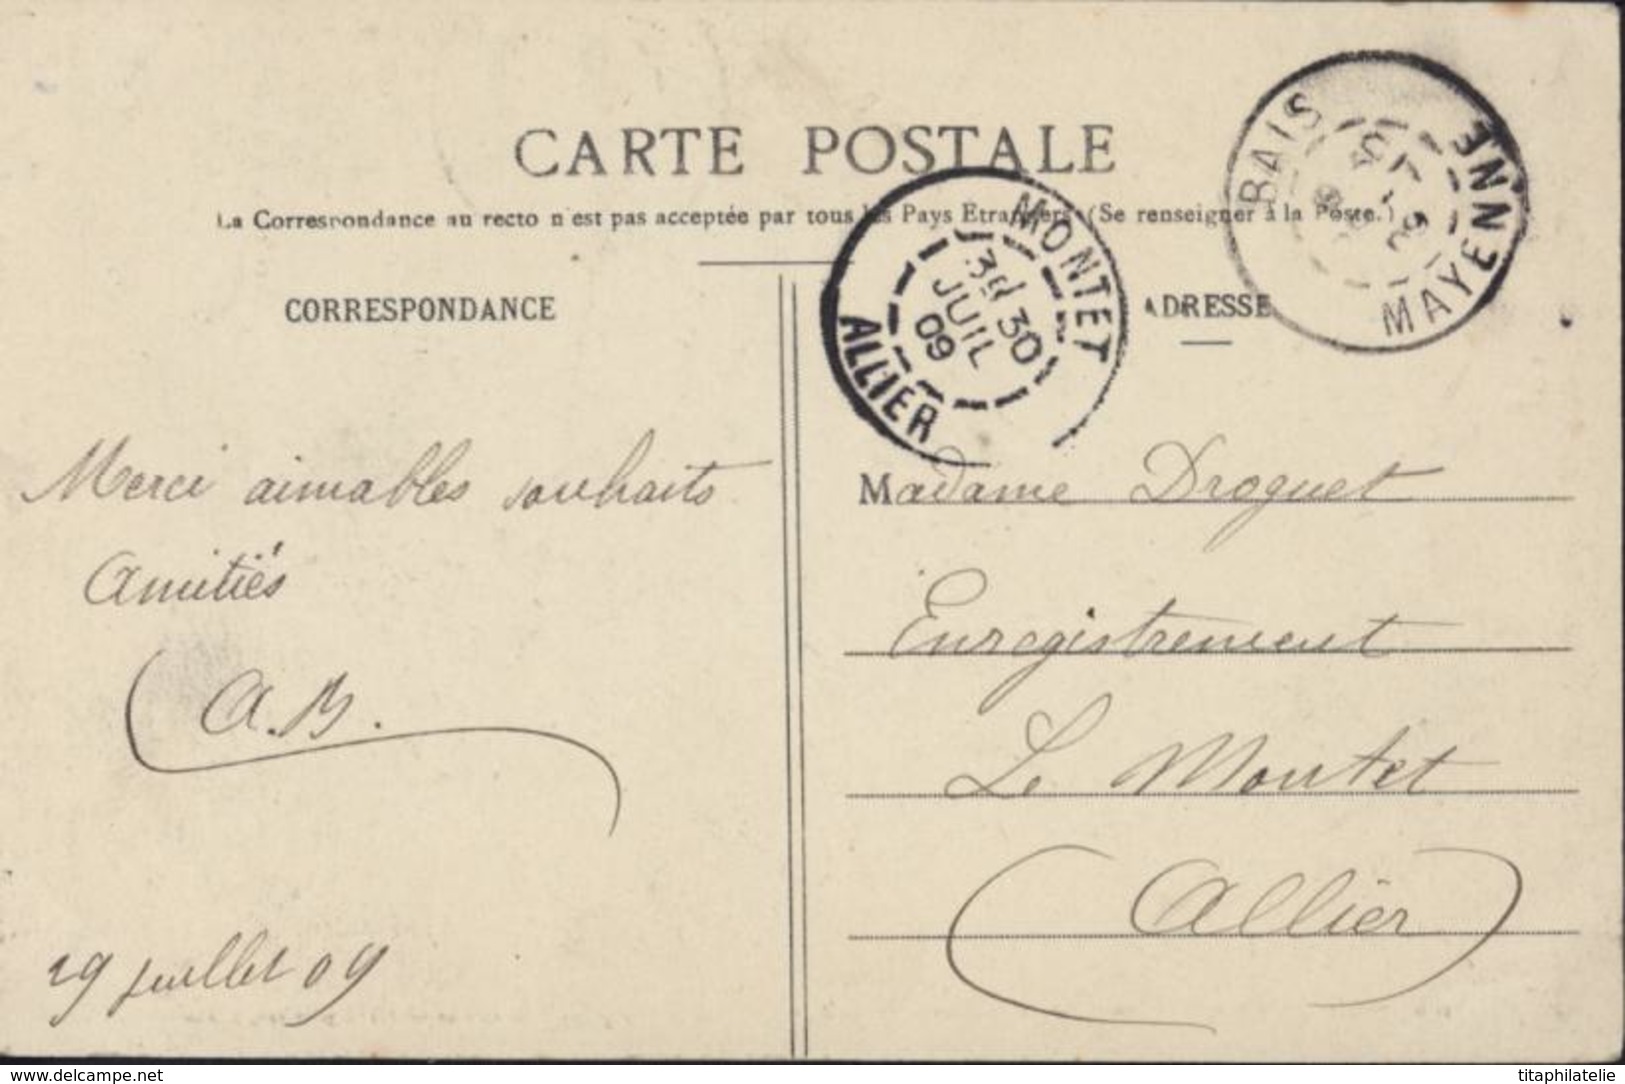 CARTE POSTALE
La Correspondance au recto n'est pas acceptée par tous les Pays Etrangers (Se renseigner à la Poste.)
CORRESPONDANCE
ADRESSE
BAIS
MAYENNE
09
MONTET
3E 30
JUIL
09
ALLIER
Merci aimables souhaits
Amitiés
A.B.
29 juillet 09
Madame Droguet
Enregistrement
Le Montet
(Allier)
www.delcampe.net
titaphilatelie